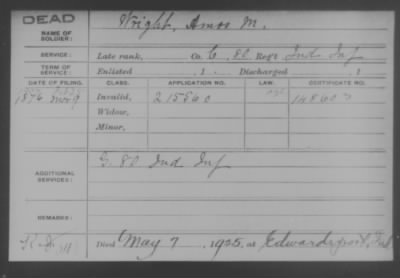 DEAD
NAME OF SOLDIER: Wright, Amos M.
SERVICE: Late rank, Co. C, 80 Reg't Ind Inf
TERM OF SERVICE: Enlisted , 1 Discharged , 1
DATE OF FILING. CLASS. APPLICATION NO. LAW. CERTIFICATE NO.
1876 Invalid, 215860
Widow,
Minor,
ADDITIONAL SERVICES: G. 80 Ind Inf
REMARKS:
Died May 7 1925, at Edwardsport, Ind